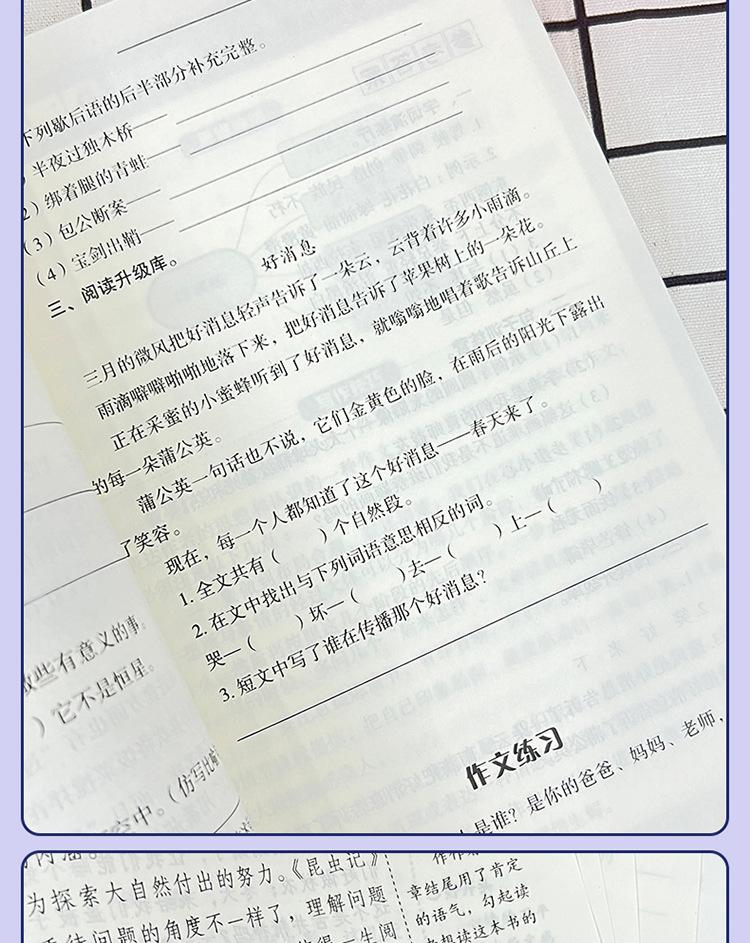 下列歇后语的后半部分补充完整。
半夜过独木桥——
2）绑着腿的青蛙——
（3）包公断案——
（4）宝剑出鞘——
三、阅读升级库。
好消息
三月的微风把好消息轻声告诉了一朵云，云背着许多小雨滴。
雨滴噼噼啪啪地落下来，把好消息告诉了苹果树上的一朵花。
正在采蜜的小蜜蜂听到了好消息，就嗡嗡地唱着歌告诉山丘上
的每一朵蒲公英。
蒲公英一句话也不说，它们金黄色的脸，在雨后的阳光下露出
了笑容。
现在，每一个人都知道了这个好消息——春天来了。
1. 全文共有（　　）个自然段。
2. 在文中找出与下列词语意思相反的词。
哭—（　　）坏—（　　）去—（　　）上—（　　）
3. 短文中写了谁在传播那个好消息？
些有意义的事。
）它不是恒星。
空中。（仿写比
作文练习
是谁？是你的爸爸、妈妈、老师，
为探索大自然付出的努力。《昆虫记》
问题的角度不一样了，理解问题
章结尾用了肯定
的语气，勾起读
想读这本书的